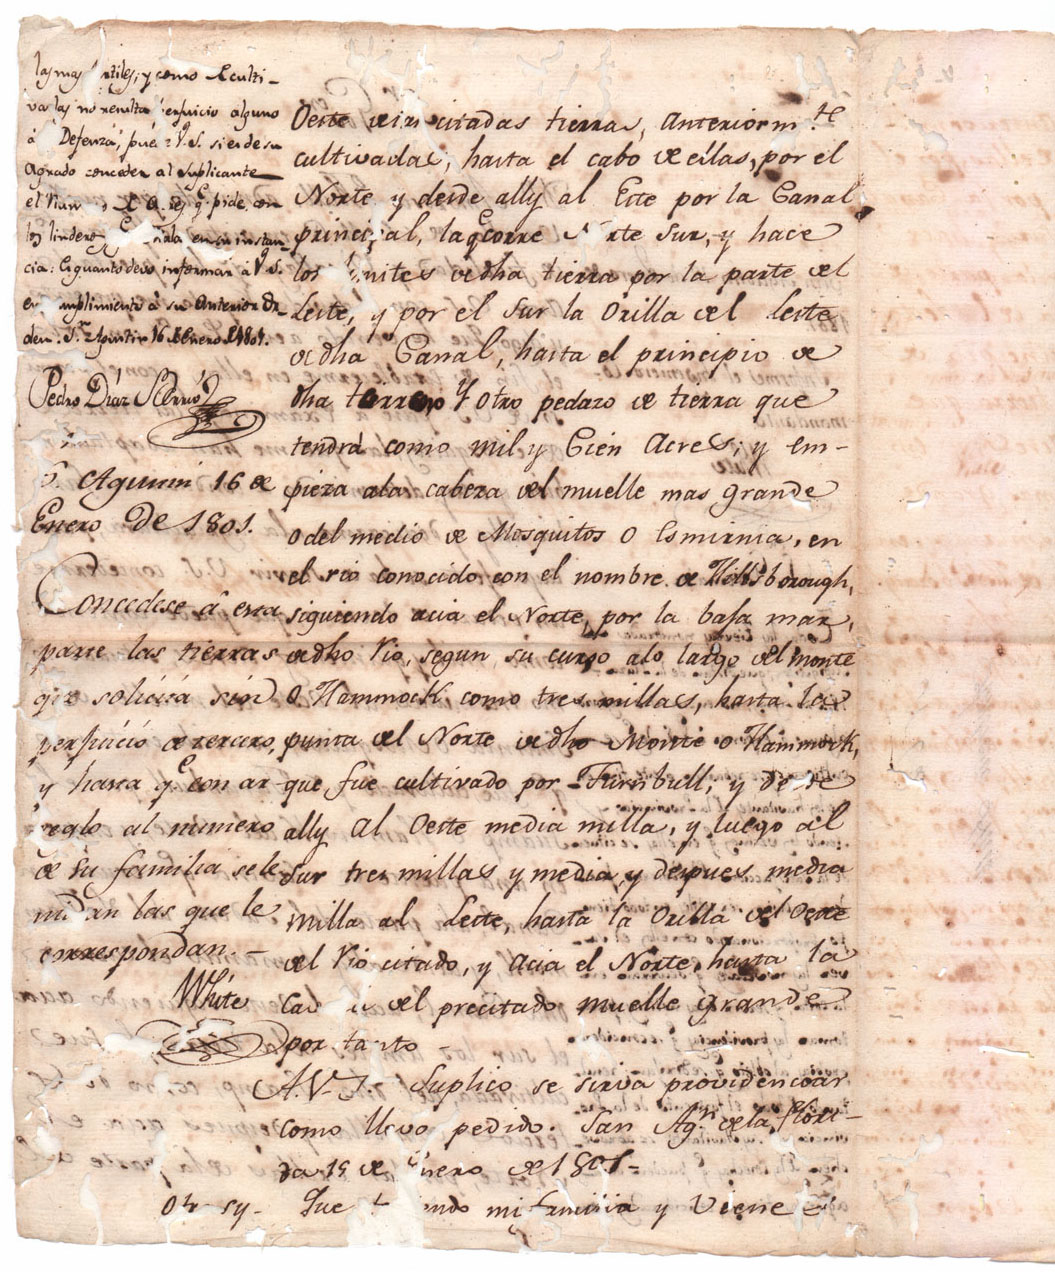 las mas utiles; y como el culti-
varlas no resulta perjuicio alguno
á Defenza, pués V.S. si es de su
Agrado conceder al Suplicante
el Num.o de A. res q.e pide, con
los linderos q.e señala en su instan-
cia: Es quanto devo informar à V.S.
en cumplimiento à su Anterior Or-
den. S.n Agustin 16 de Enero de 1801.
Pedro Díaz Berrio
S. Agustin 16 de
Enero de 1801.
Concedese á esta
parte las tierras
que solicita sin
perjuicio de tercero,
y hasta q.e con ar-
reglo al número
de su familia se le
midan las que le
correspondan.-
White
Oeste de las citadas tierras, anteriorm.te
cultivadas, hasta el cabo de ellas, por el
Norte y desde ally al Este por la Canal
principal, la q.e corre Norte Sur, y hace
los limites de dha tierra por la parte del
Leste, y por el Sur la Orilla del Leste
de dha Canal, hasta el principio de
dha terreno y otro pedazo de tierra que
tendrá como mil y Cien Acres; y em-
pieza a la cabeza del muelle mas grande
o del medio de Mosquitos o Esmirnia, en
el rio conocido con el nombre de Hillsborough,
siguiendo acia el Norte, por la baja mar,
de dho Rio, segun su curso a lo largo del monte
o Hammock, como tres millas, hasta la
punta del Norte de dho Monte o Hammock,
que fue cultivado por Turnbull; y desde
ally al Oeste media milla, y luego al
Sur tres millas y media, y depues media
milla al Leste, hasta la Orilla del Oeste
del Rio citado, y Acia el Norte, hasta la
Cabeza del precitado muelle grande
por tanto -
A.V.S. Suplico se sirva providenciar
como llevo pedido. San Ag.n de la Flori-
da 15 de Enero de 1801-
Otro sy- Que teniendo mi familia y Viene